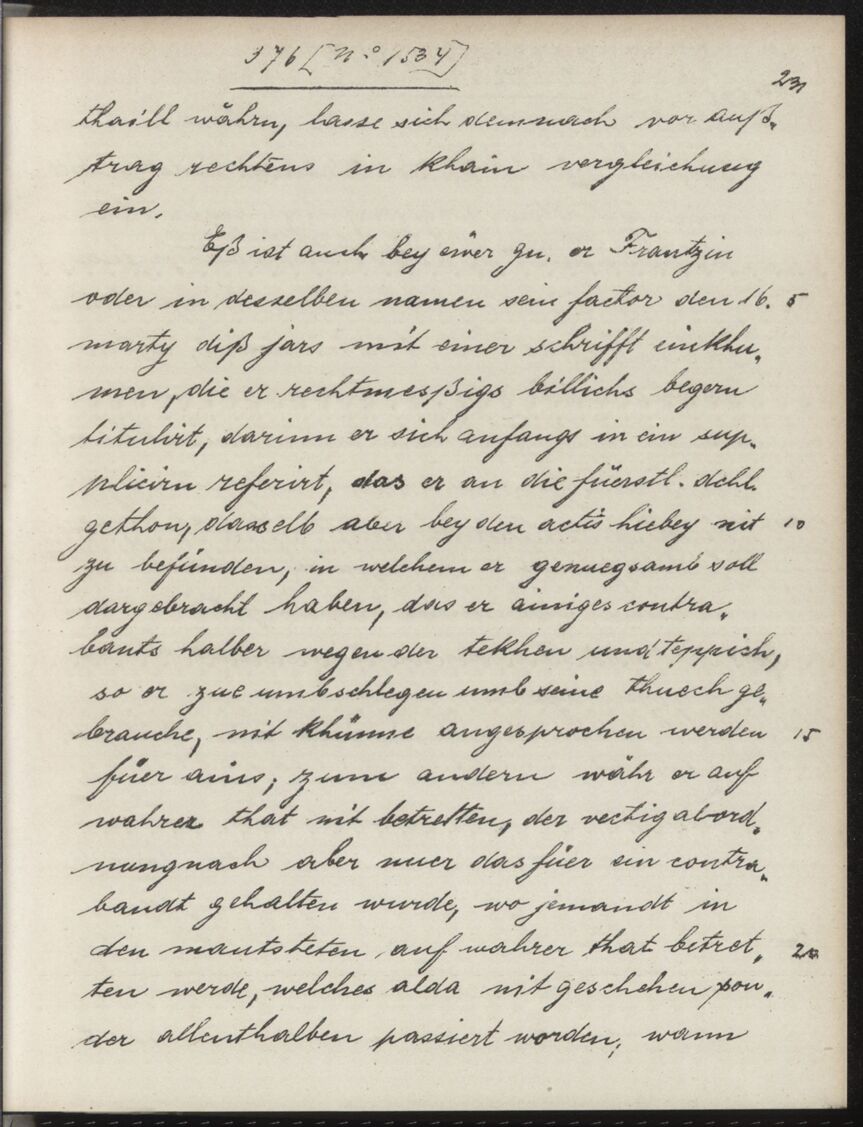 376 [No 1534]
23
thaill währn, lasse sich demnach vor auß„
trag rechtens in khain vergleichung
ein.
Eß ist auch bey ewer gn. er Frantzin
oder in desselben namen sein factor den 16. 5
marty diß jars mit einer schrifft einkhu„
men, die er rechtmesßigs billichs begern
titulirt, darinn er sich anfangs in ein sup„
plicirn referirt, das er an die füerstl. dchl.
gethon, dasselb aber bey den actis hiebey nit 10
zu befünden, in welchem er genuegsamb soll
dargebracht haben, das er ainiges contra„
bants halber wegen der tekhen und teppich,
so er zue umbschlegen umb seine thuech ge„
brauche, nit khünne angesprochen werden 15
füer ains; zum andern währ er auf
wahrer that nit betretten, der vectigalord„
nung nach aber nuer das füer ein contra„
bandt gehalten wurde, wo jemandt in
den mautsteten auf wahrer that betret„ 20
ten werde, welches alda nit geschehen son„
der allenthalben passiert worden; wann